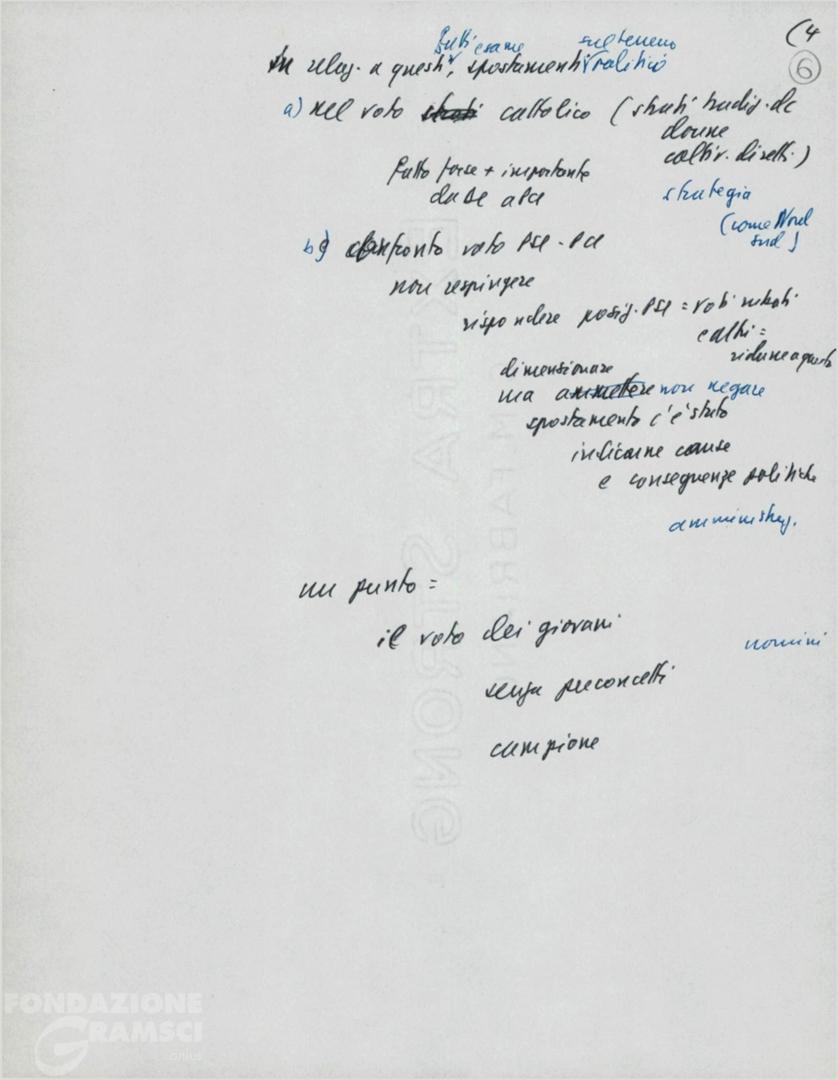 (4
6
fatti esame sul terreno
In relaz. a questi, spostamenti politico
a) nel voto strati cattolico (strati tradiz. dc
donne
coltiv. diretti)
fatto forse + importante
da DC a PCI
strategia
(come Nord
Sud)
b) confronto voto PSI - PCI
non respingere
rispondere posiz. PSI = voti rubati
e altri =
ridurre a questo
dimensionare
ma ammettere non negare
spostamento c'è stato
indicarne cause
e conseguenze politiche
amministraz.
un punto =
il voto dei giovani
uomini
senza preconcetti
campione
EXTRA STRONG
FABRIANO
FONDAZIONE
GRAMSCI
onlus